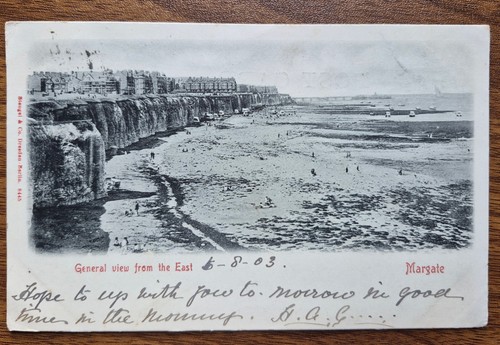 Stengel & Co., Dresden Berlin 8443
General view from the East
6-8-03.
Margate
Hope to up with you to-morrow in good
time in the morning. H.A.G.